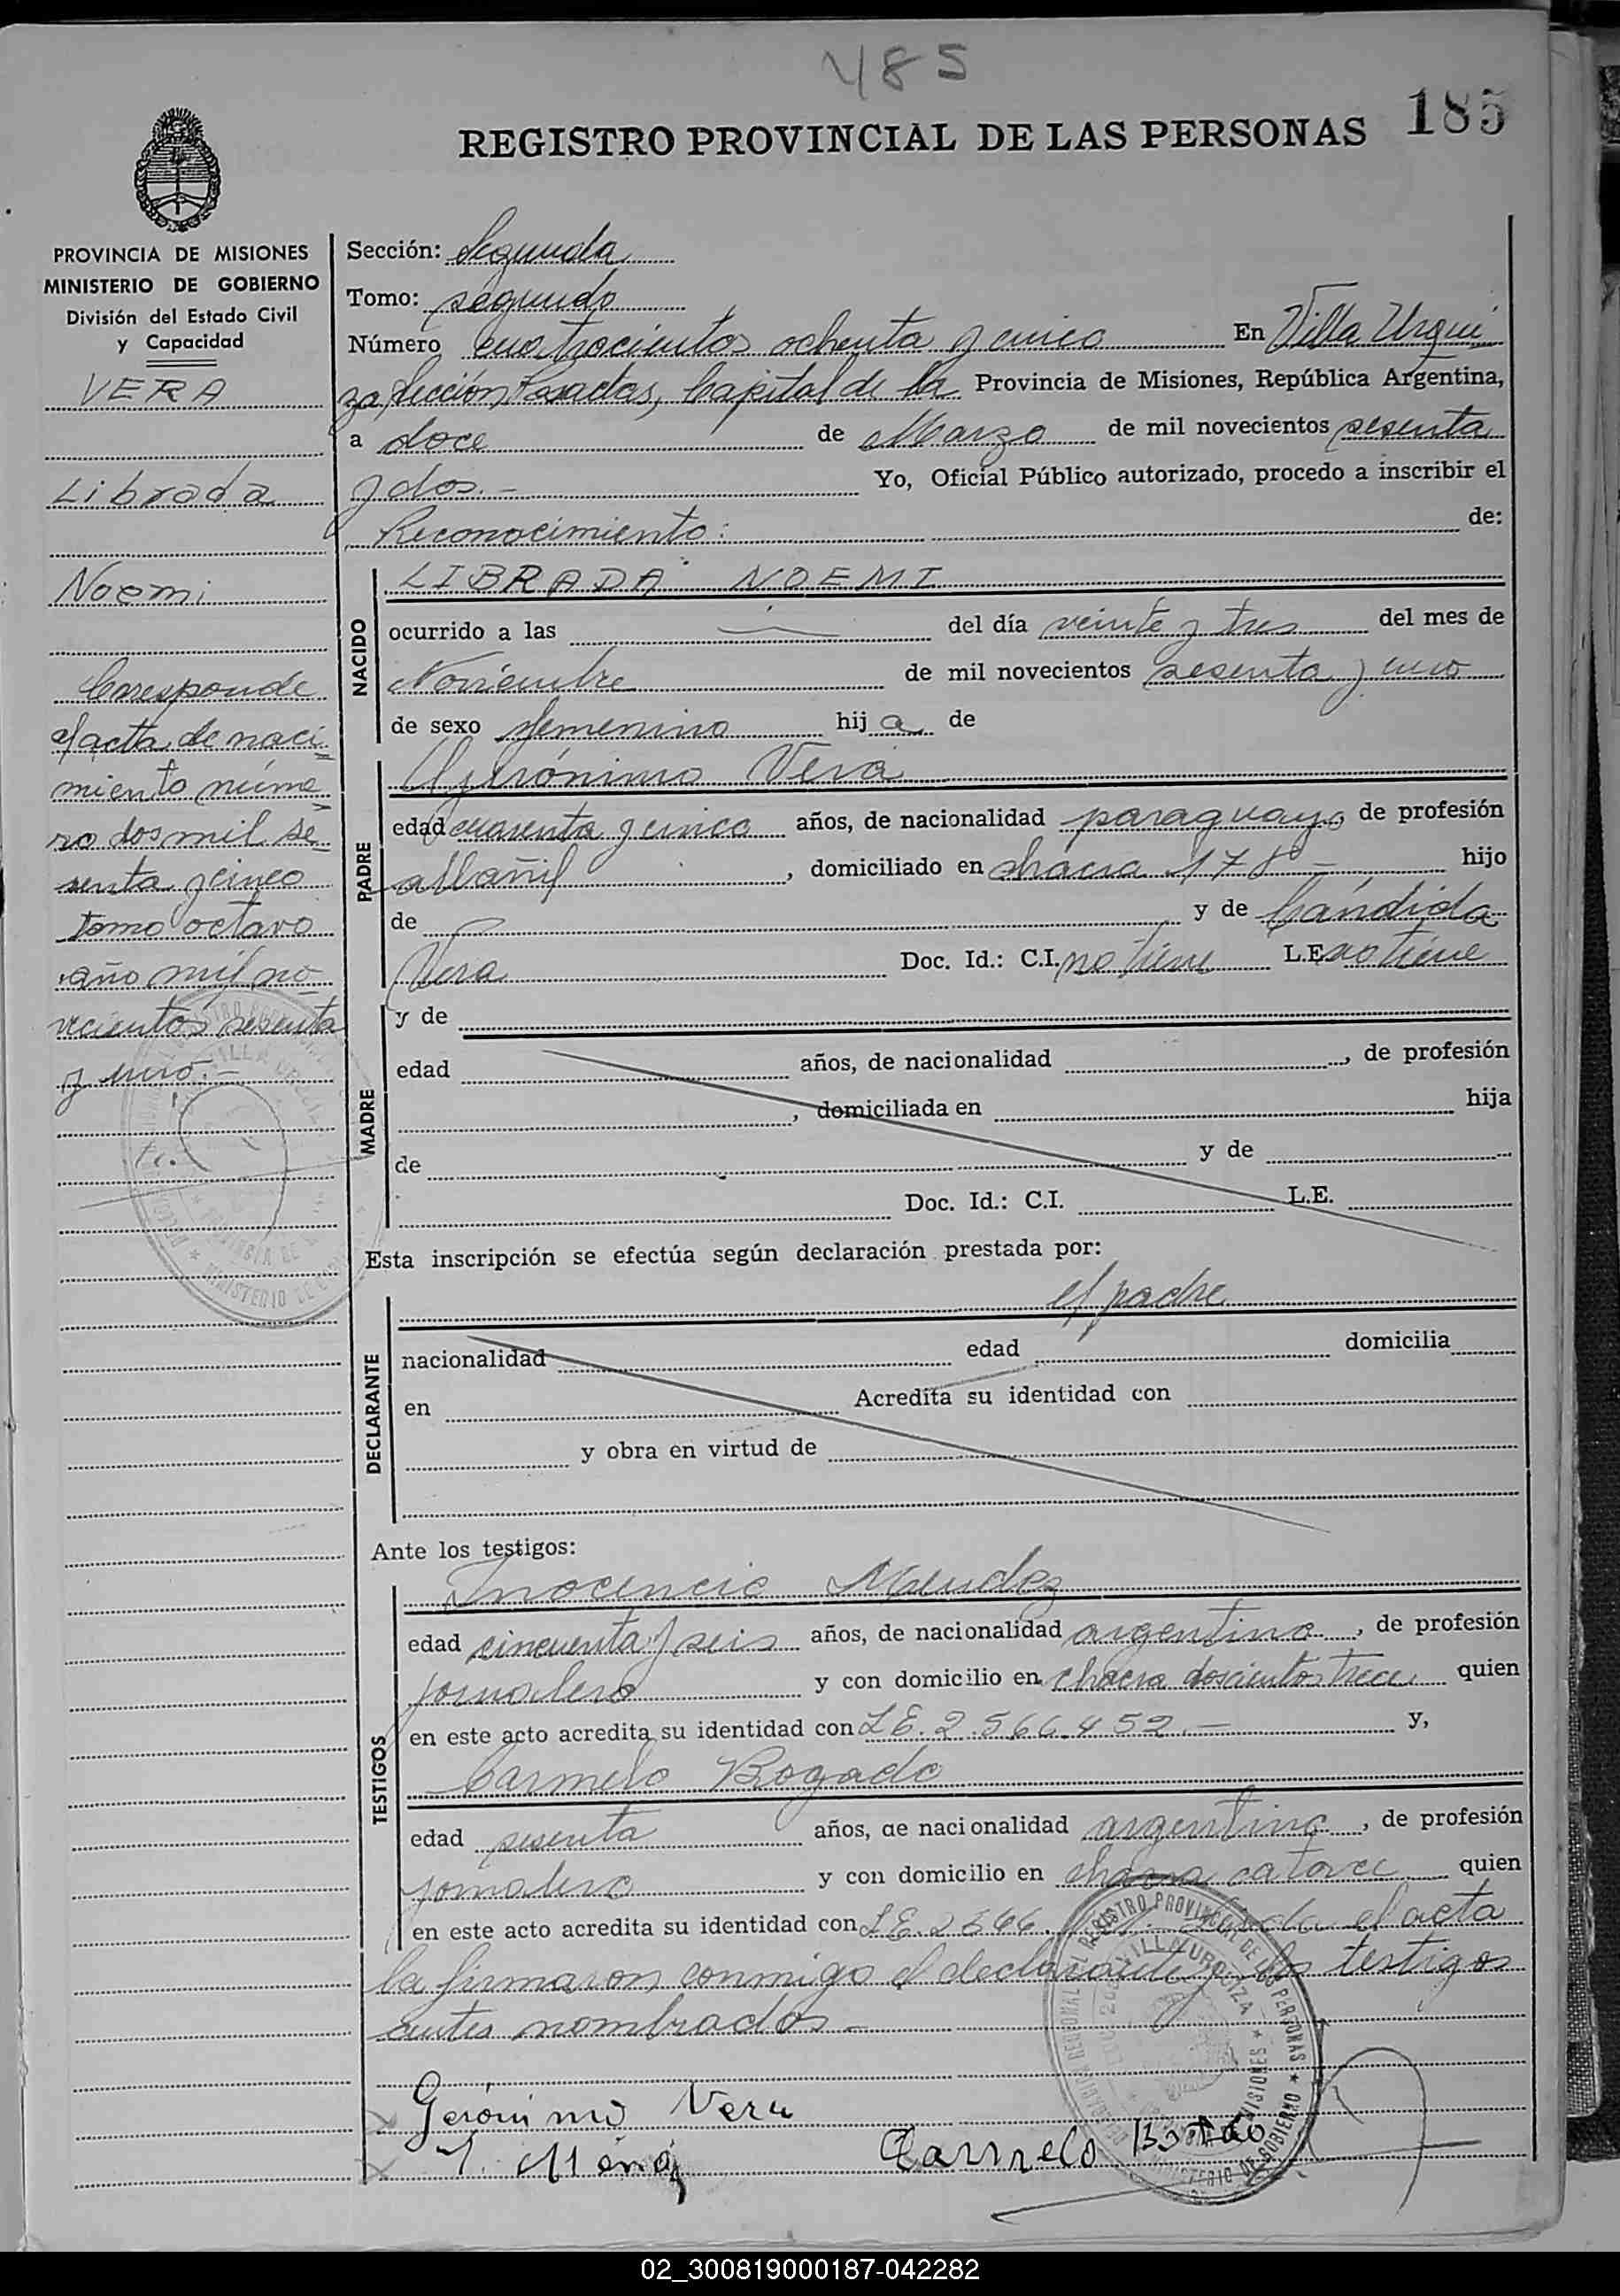 485
REGISTRO PROVINCIAL DE LAS PERSONAS 185
PROVINCIA DE MISIONES
MINISTERIO DE GOBIERNO
División del Estado Civil
y Capacidad
VERA
Librada
Noemi
Corresponde
al acta de naci=
miento núme=
ro dos mil se=
senta y cinco
tomo octavo
año mil no=
vecientos sesenta
y uno.-
Sección: Segunda
Tomo: segundo
Número cuatrocientos ochenta y cinco En Villa Urqui
za, Sección Posadas, Capital de la Provincia de Misiones, República Argentina,
a doce de Marzo de mil novecientos sesenta
y dos.- Yo, Oficial Público autorizado, procedo a inscribir el
Reconocimiento: de:
NACIDO
LIBRADA NOEMI
ocurrido a las del día veinte y tres del mes de
Noviembre de mil novecientos sesenta y uno
de sexo femenino hija de
PADRE
Gerónimo Vera
edad cuarenta y cinco años, de nacionalidad paraguayo de profesión
albañil, domiciliado en chacra 178 - hijo
de y de Cándida
Vera Doc. Id.: C.I. no tiene L.E. no tiene
MADRE
y de
edad años, de nacionalidad , de profesión
, domiciliada en hija
de y de
Doc. Id.: C.I. L.E.
Esta inscripción se efectúa según declaración prestada por:
DECLARANTE
el padre
nacionalidad edad domicilia
en Acredita su identidad con
y obra en virtud de
Ante los testigos:
TESTIGOS
Inocencio Mendez
edad cincuenta y seis años, de nacionalidad argentino, de profesión
jornalero y con domicilio en chacra doscientos trece quien
en este acto acredita su identidad con L.E. 2.566.452.- y,
Carmelo Bogado
edad sesenta años, de nacionalidad argentino, de profesión
jornalero y con domicilio en chacra catorce quien
en este acto acredita su identidad con L.E. el acta
la firmaron conmigo el declarante y los testigos
antes nombrados.-
Gerónimo Vera
Carmelo
REGISTRO PROVINCIAL DE LAS PERSONAS
VILLA URQUIZA
MINISTERIO DE GOBIERNO
02_300819000187-042282